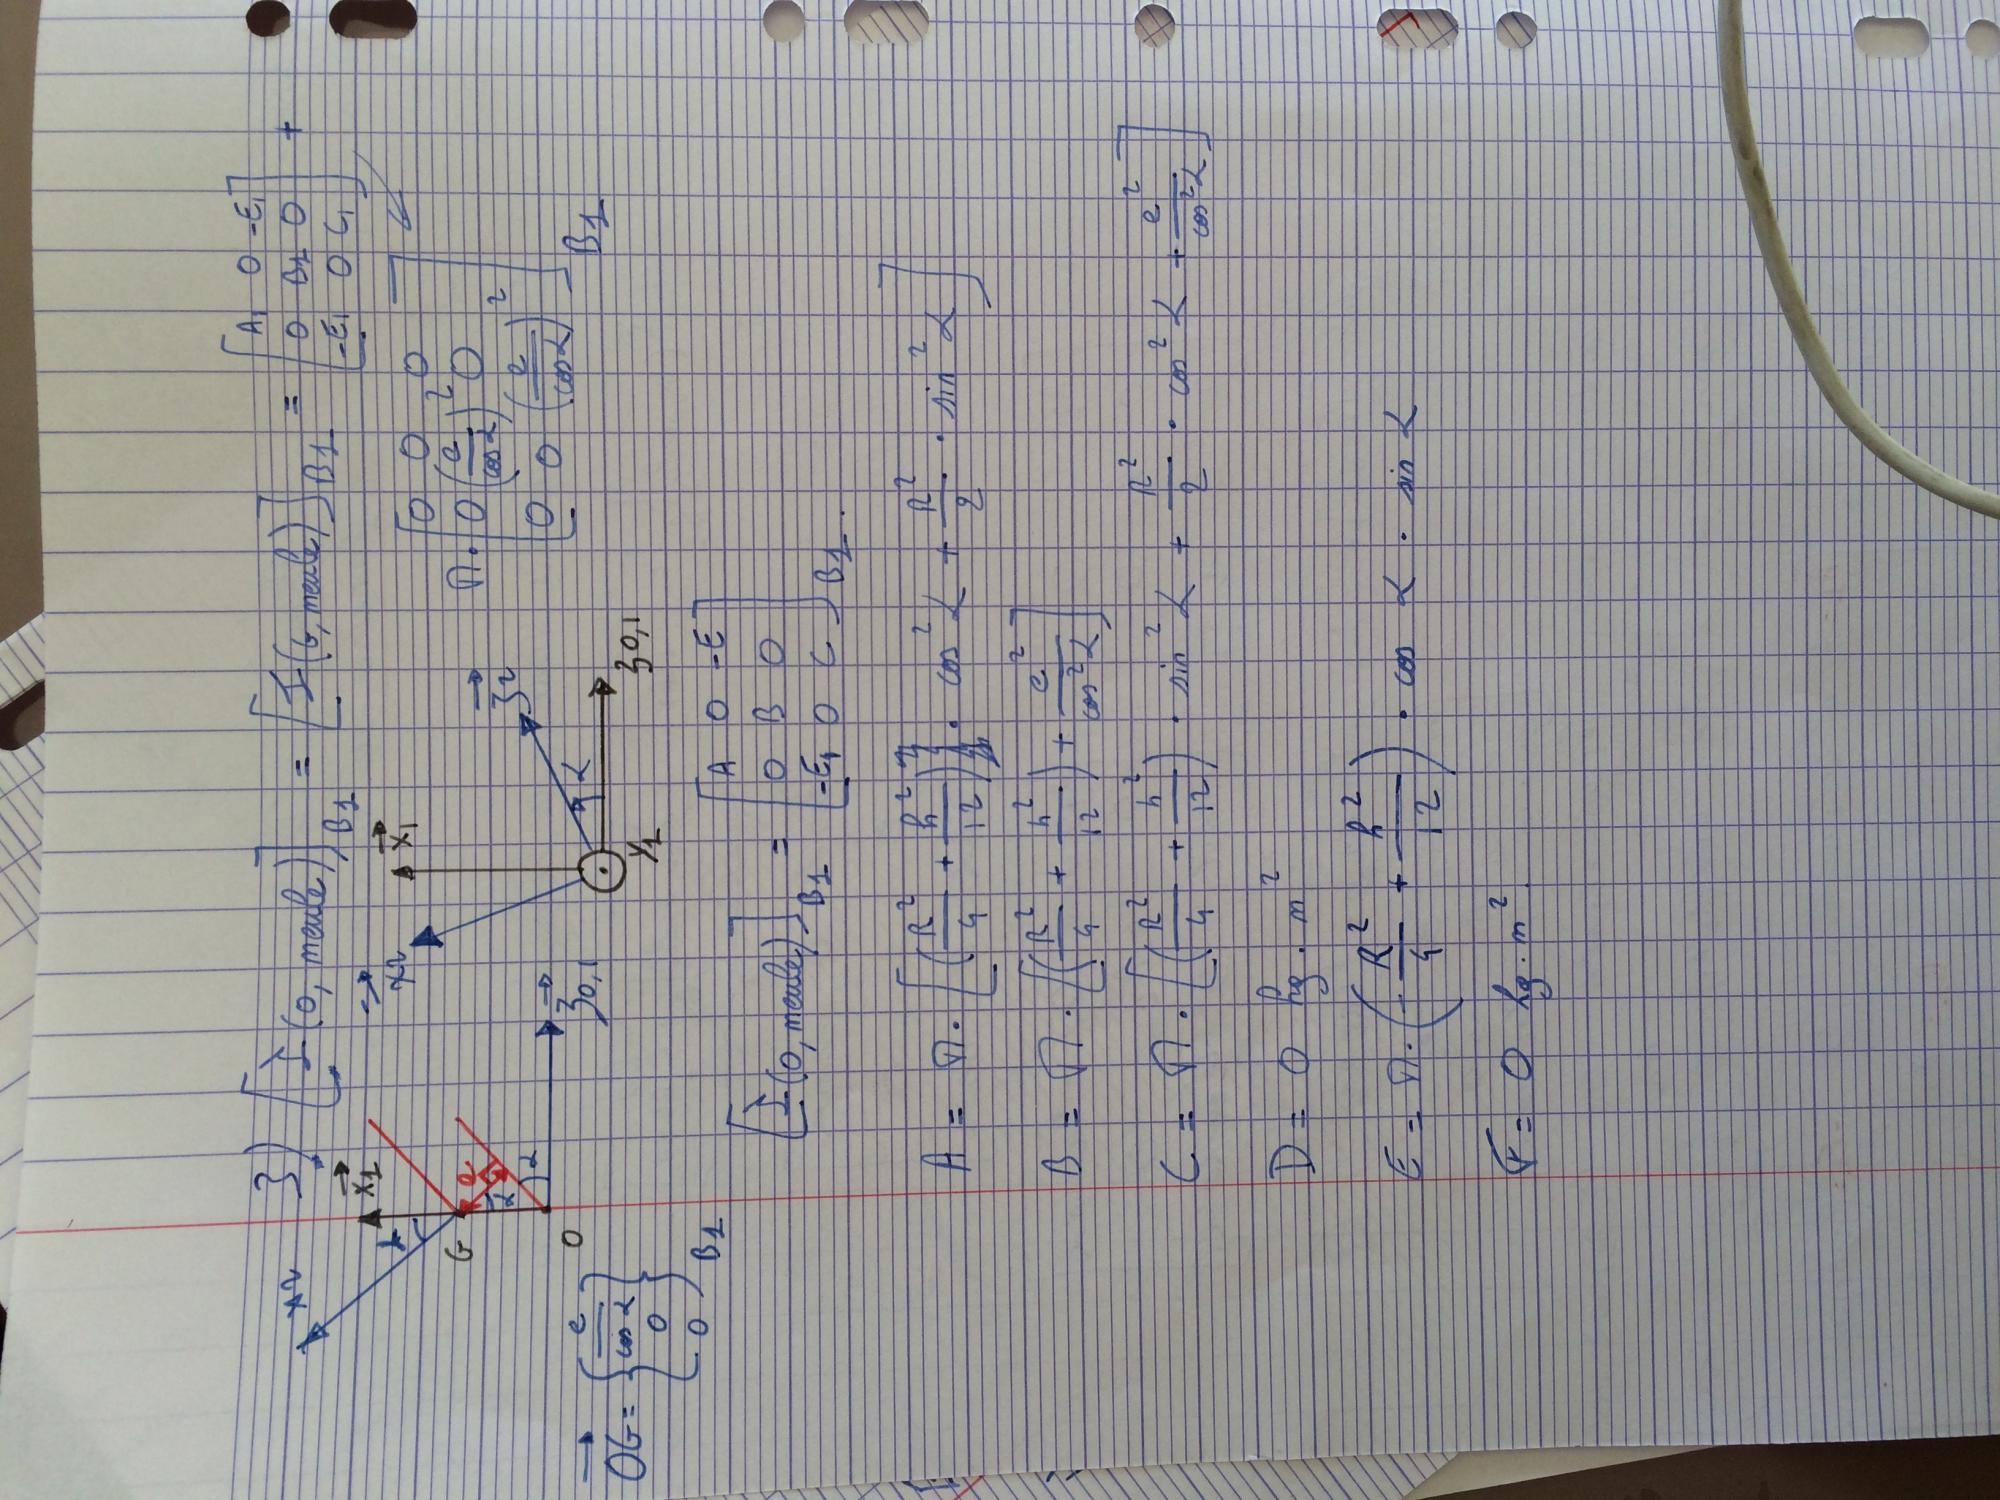 3) [I(0, meule)]B1 = [I(G, meule)]B1 = [A1 0 -E1
0 B1 0
-E1 0 C1] +
M. [0 0 0
0 (e/cos α)² 0
0 0 (e/cos α)²]B1
x2 x1 G e α α O z0,1
x2 x1 z2 α y1 z0,1
OG = {e/cos α
0
0}B1
[I(0, meule)]B1 = [A 0 -E
0 B 0
-E1 0 C]B1.
A = M. [(R²/4 + h²/12) . cos² α + R²/2 . sin² α]
B = M. [(R²/4 + h²/12) + e²/cos² α]
C = M. [(R²/4 + h²/12) . sin² α + R²/2 . cos² α + e²/cos² α]
D = 0 kg.m²
E = M. (R²/4 + h²/12) . cos α . sin α
F = 0 kg.m².